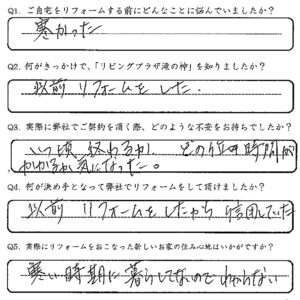 Q1. ご自宅をリフォームする前にどんなことに悩んでいましたか？
寒かった
Q2. 何がきっかけで、「リビングプラザ滝の神」を知りましたか？
以前 リフォームをした.
Q3. 実際に弊社でご契約を頂く際、どのような不安をお持ちでしたか？
いつ頃 終わるか、 どの位の時間が
かかるか 気になった。
Q4. 何が決め手となって弊社でリフォームをして頂けましたか？
以前 リフォームをしたから 信用していた
Q5. 実際にリフォームをおこなった新しいお家の住み心地はいかがですか？
寒い時期に 暮らしてないのでわからない